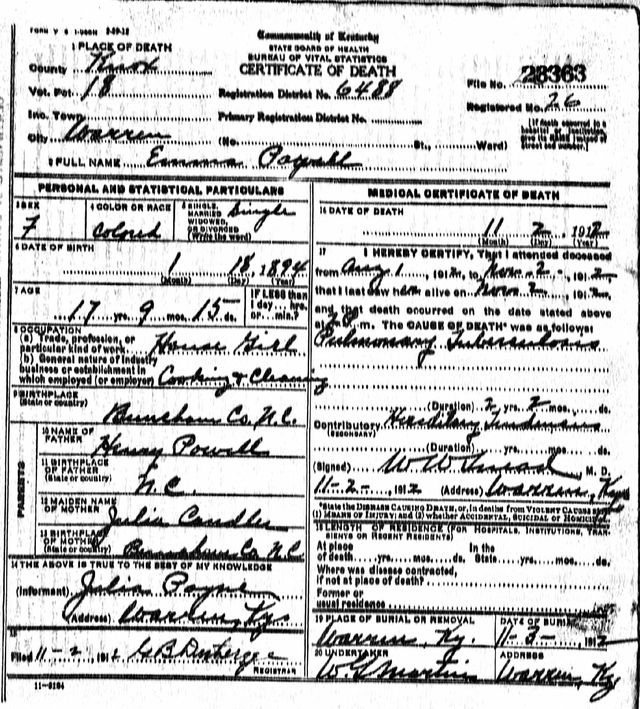 FORM V S 1-500M 2-29-12
Commonwealth of Kentucky
STATE BOARD OF HEALTH
BUREAU OF VITAL STATISTICS
CERTIFICATE OF DEATH
1 PLACE OF DEATH
County Knox
Vot. Pct. 18
Inc. Town
City Warren
Registration District No. 6488
Primary Registration District No.
(No. St., Ward)
File No. 28363
Registered No. 26
[If death occurred in a hospital or institution, give its NAME instead of street and number.]
2 FULL NAME Emma Powell
PERSONAL AND STATISTICAL PARTICULARS
3 SEX F
4 COLOR OR RACE Colored
5 SINGLE, MARRIED, WIDOWED, OR DIVORCED (Write the word) Single
6 DATE OF BIRTH
1 18, 1894
(Month) (Day) (Year)
7 AGE
17 yrs. 9 mos. 15 ds.
IF LESS than 1 day... hrs. or... min.?
8 OCCUPATION
(a) Trade, profession, or particular kind of work House Girl
(b) General nature of industry business or establishment in which employed (or employer) Cooking & Cleaning
9 BIRTHPLACE
(State or country)
Buncham Co. N.C.
PARENTS
10 NAME OF FATHER Henry Powell
11 BIRTHPLACE OF FATHER (State or country) N.C.
12 MAIDEN NAME OF MOTHER Julia Candler
13 BIRTHPLACE OF MOTHER (State or country) Buncham Co. N.C.
14 THE ABOVE IS TRUE TO THE BEST OF MY KNOWLEDGE
(Informant) Julia Payne
(Address) Warren, Ky
15
Filed 11-2, 1912 G B
REGISTRAR
11-6184
MEDICAL CERTIFICATE OF DEATH
16 DATE OF DEATH
11 2, 1912
(Month) (Day) (Year)
17 I HEREBY CERTIFY, That I attended deceased
from Aug 1, 1912, to Nov. 2, 1912,
that I last saw her alive on Nov. 2, 1912,
and that death occurred on the date stated above
at m. The CAUSE OF DEATH* was as follows:
Pulmonary Tuberculosis
(Duration) 2 yrs. 2 mos. ds.
Contributory Hereditary
(SECONDARY)
(Duration) yrs. mos. ds.
(Signed) W W M. D.
11-2-, 1912 (Address) Warren, Ky
*State the DISEASE CAUSING DEATH, or, in deaths from VIOLENT CAUSES state (1) MEANS OF INJURY; and (2) whether ACCIDENTAL, SUICIDAL OR HOMICIDAL
18 LENGTH OF RESIDENCE (FOR HOSPITALS, INSTITUTIONS, TRANSIENTS OR RECENT RESIDENTS)
At place of death yrs. mos. ds. In the State yrs. mos. ds.
Where was disease contracted, if not at place of death?
Former or usual residence
19 PLACE OF BURIAL OR REMOVAL
Warren, Ky.
DATE OF BURIAL
11-3-, 1912
20 UNDERTAKER
Martin
ADDRESS
Warren, Ky